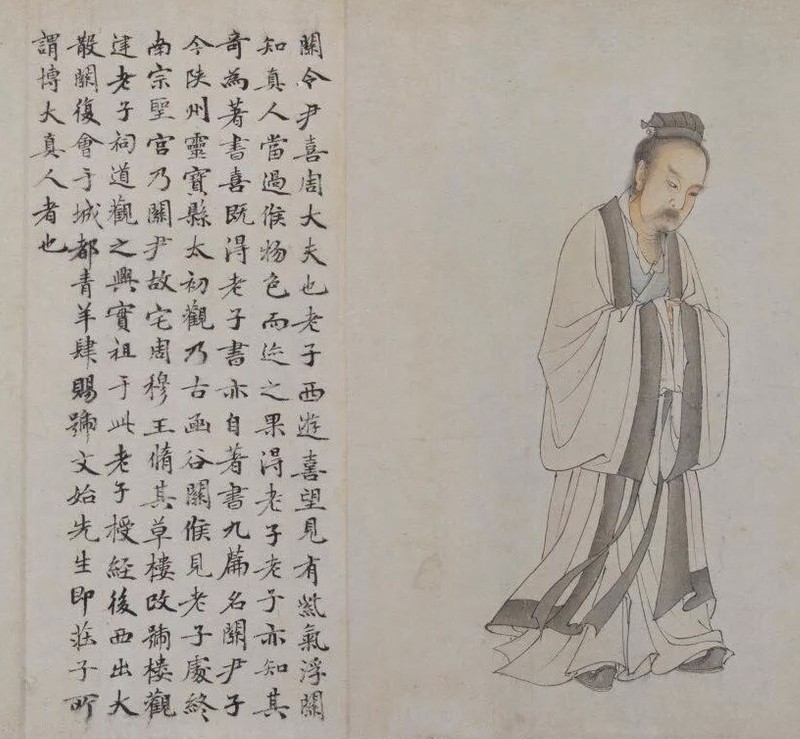 關令尹喜周大夫也老子西遊喜望見有紫氣浮關
知真人當過候物色而迹之果得老子老子亦知其
奇為著書喜既得老子書亦自著書九篇名關尹子
今陝州靈寶縣太初觀乃古函谷關候見老子處終
南宗聖宮乃關尹故宅周穆王脩其草樓改號樓觀
建老子祠道觀之興實祖于此老子授經後西出大
散關復會于城都青羊肆賜號文始先生即莊子所
謂博大真人者也